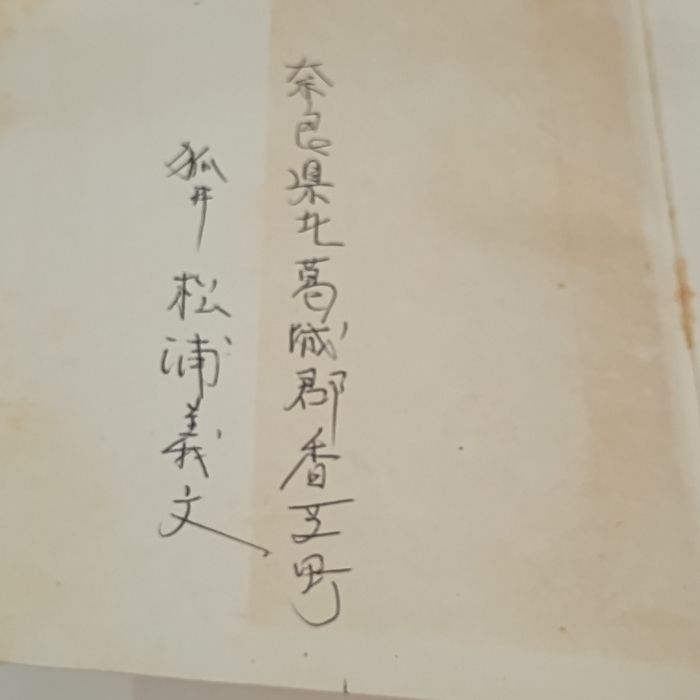 奈良県北葛城郡香芝町
狐井 松浦義文